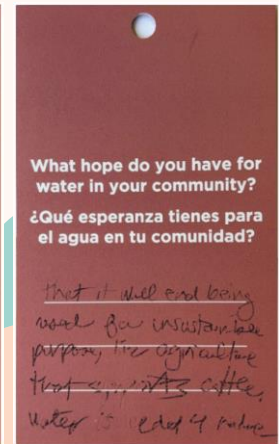 What hope do you have for
water in your community?
¿Qué esperanza tienes para
el agua en tu comunidad?
that it will end being
used for unsustainable
purpose, like agriculture
that supports cattle.
Water is